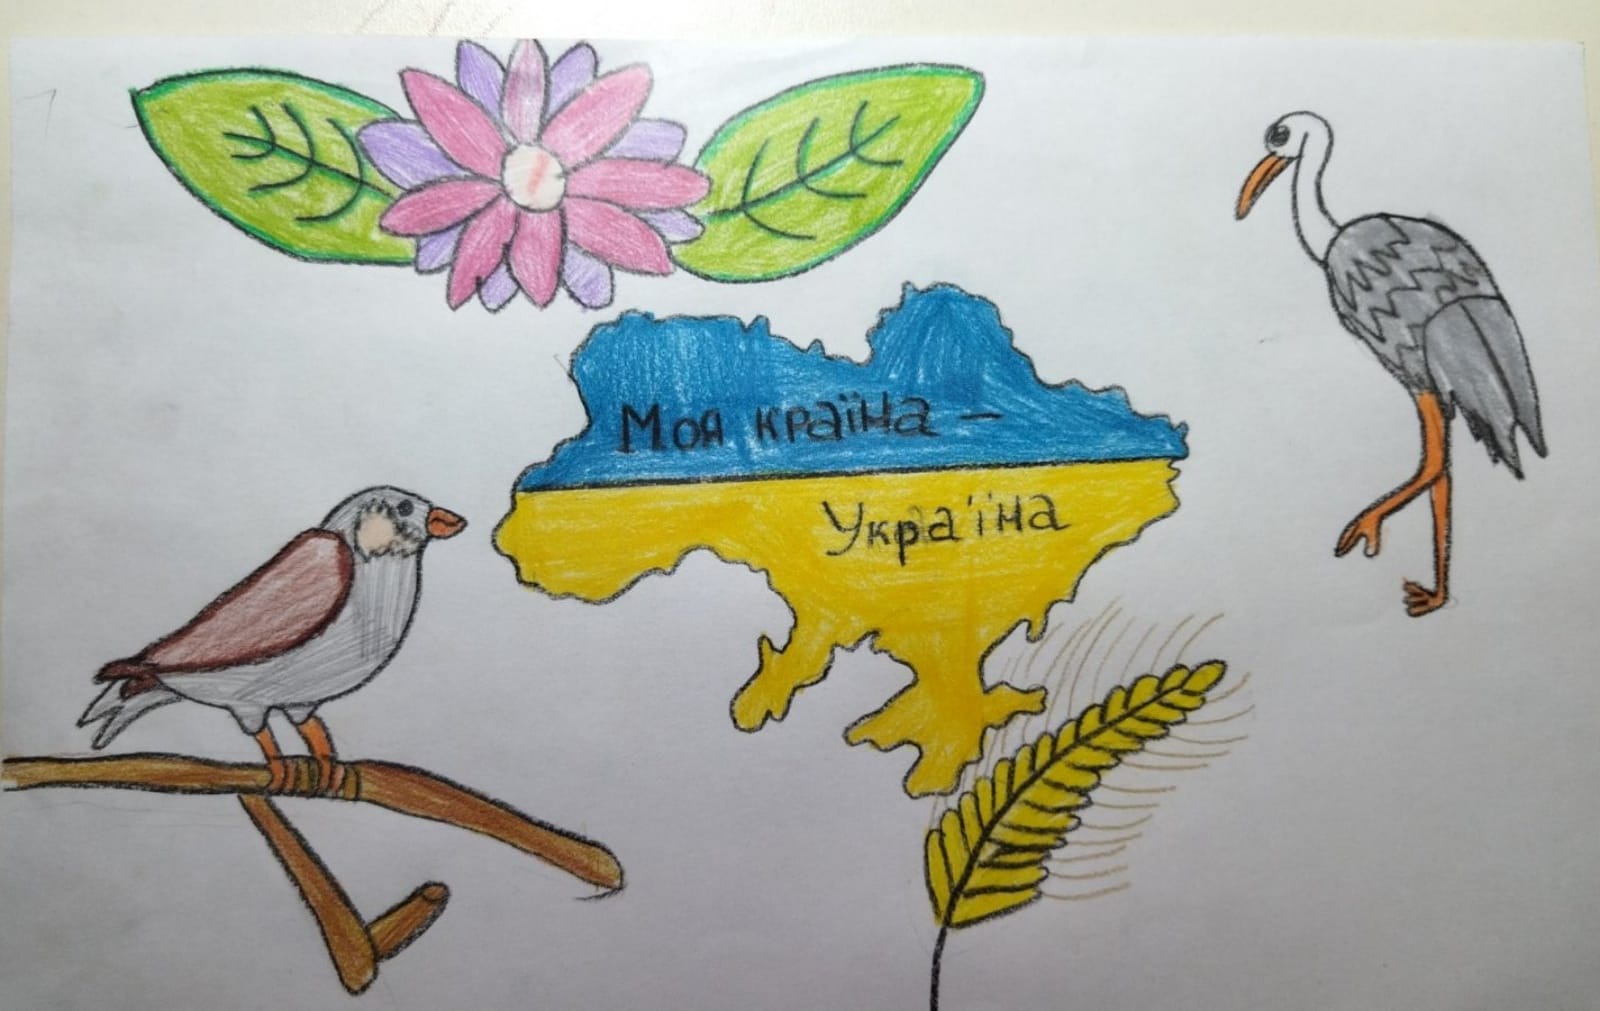 Моя країна –
Україна